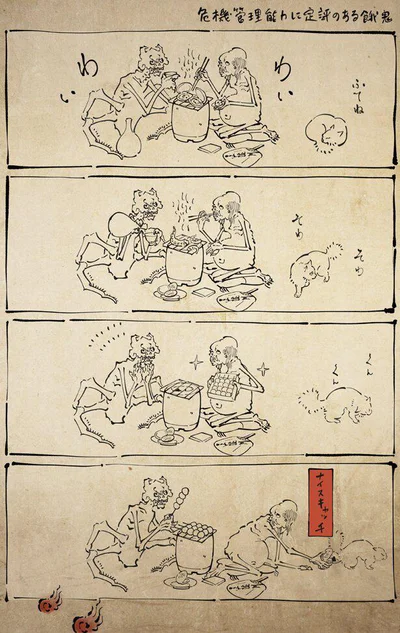 危機管理能力に定評のある餓鬼
ふてね
わい
わい
そわ
そわ
くん
くん
ナイスキャッチ